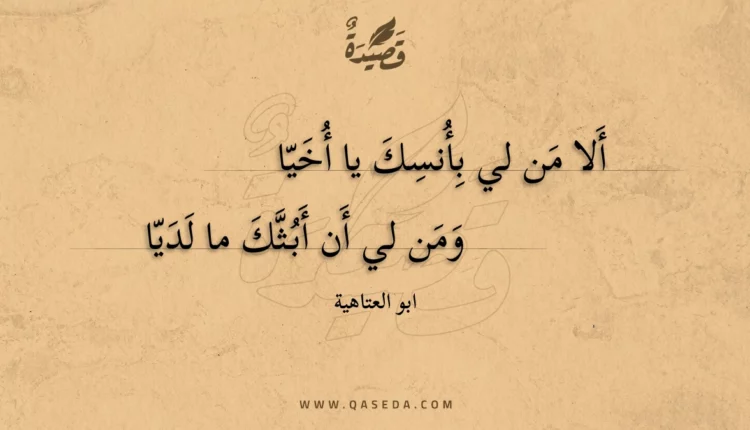 قَصِيدَةٌ
أَلا مَن لي بِأُنسِكَ يا أُخَيّا
وَمَن لي أَن أَبُثَّكَ ما لَدَيّا
ابو العتاهية
WWW.QASEDA.COM